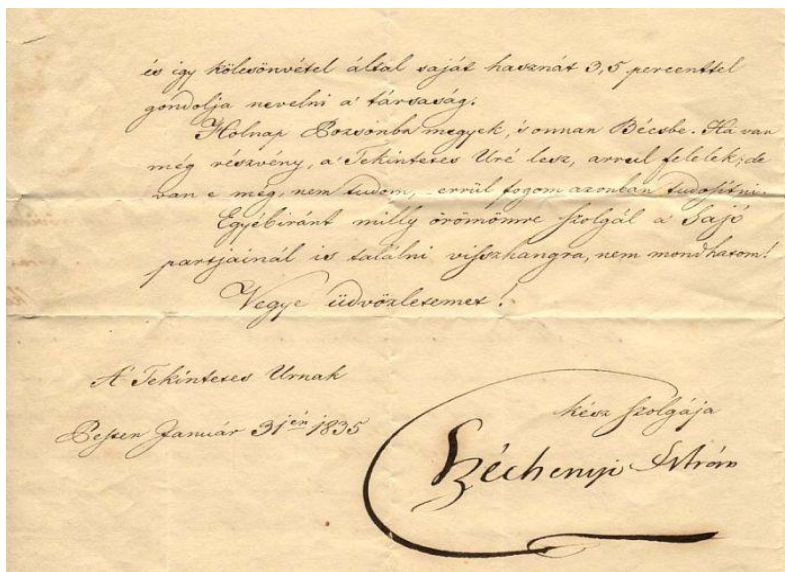 és igy kölcsönvétel által saját hasznát 3,5 percenttel
gondolja nevelni a' társaság.
Holnap Pozsonba megyek, 's onnan Bécsbe. Ha van
még részvény, a' Tekintetes Uré lesz, arrul felelek; de
van e még, nem tudom, errül fogom azonban tudositni.
Egyébiránt milly örömömre szolgál a Sajó
partjainál is találni visszhangra, nem mondhatom!
Vegye üdvözletemet!
A' Tekintetes Urnak
kész szolgája
Pesten Január 31jén 1835
Széchenyi István